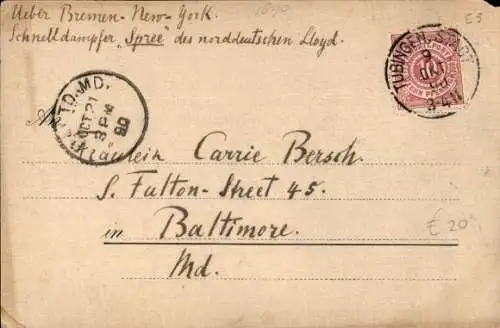 Ueber Bremen-New-York. 1890 E5
Schnelldampfer "Spree" des norddeutschen Lloyd.
TÜBINGEN. STADT
9
OKT
3-4 N
TO. MD.
OCT 21
3 PM
90
An
Fräulein Carrie Bersch.
S. Fulton-Street 45.
in Baltimore.
Md.
£ 20